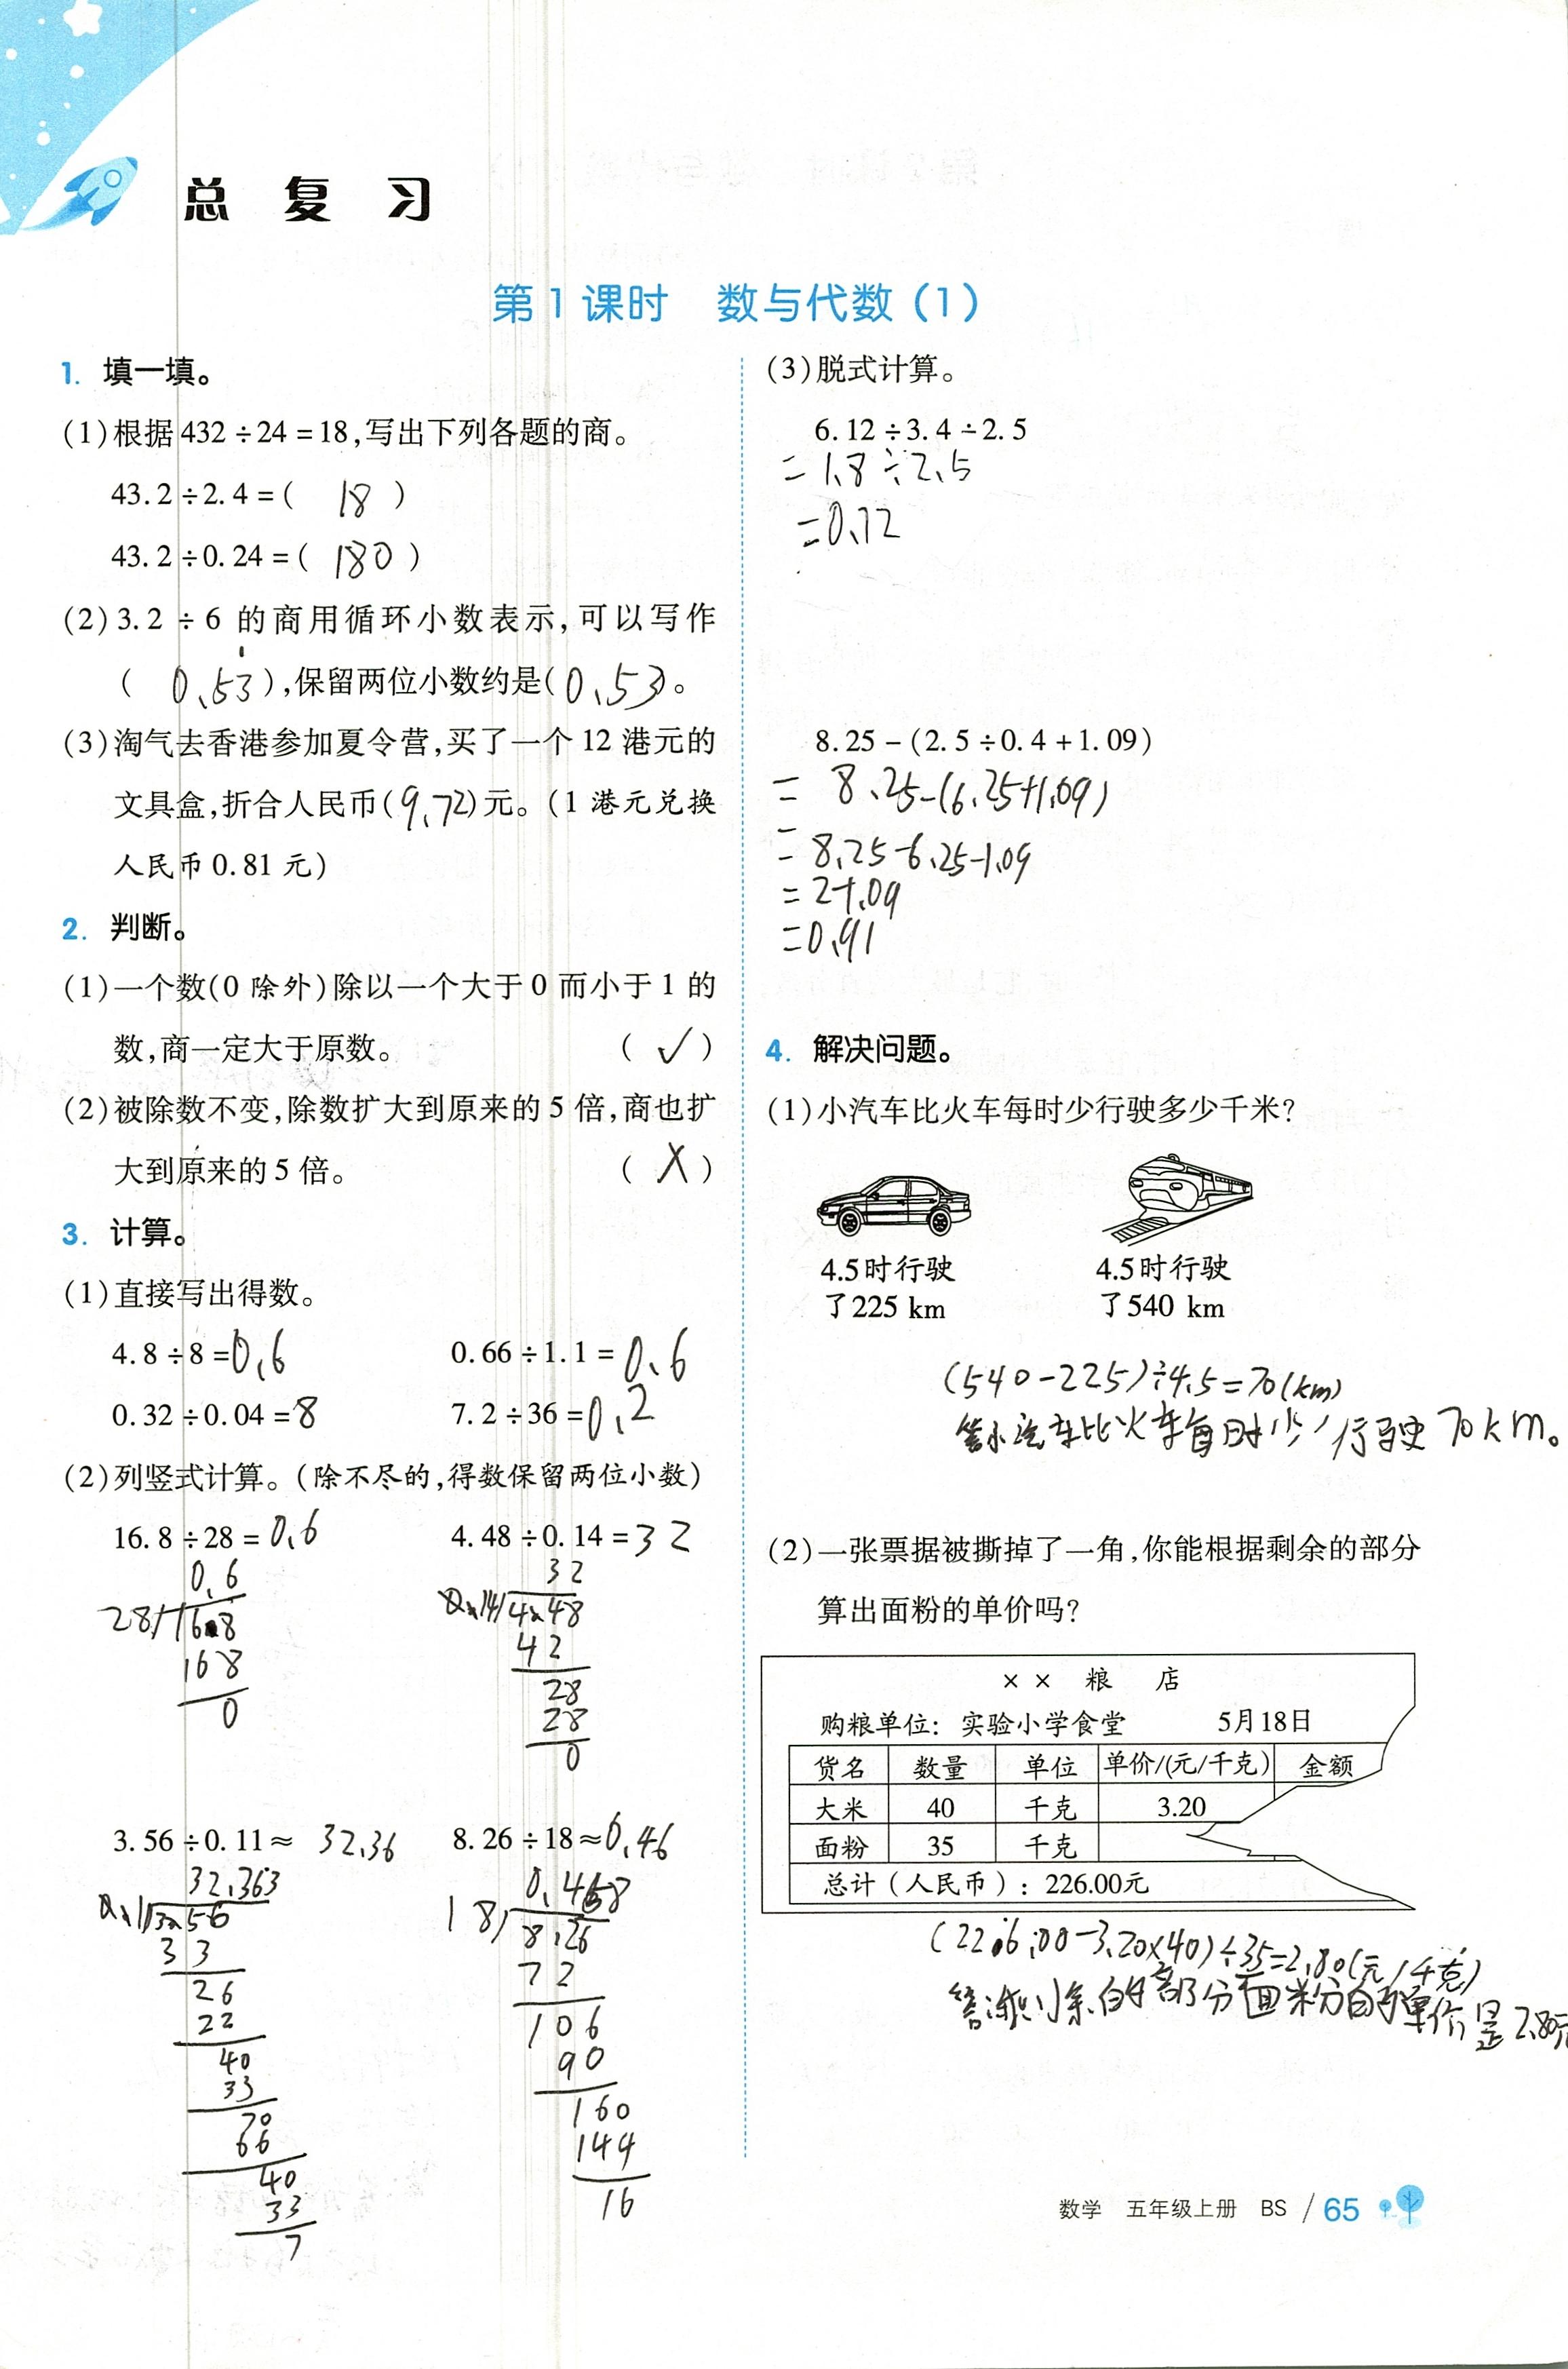 总 复 习
第1课时 数与代数(1)
1. 填一填。
(1)根据432÷24=18,写出下列各题的商。
43.2÷2.4=( 18 )
43.2÷0.24=( 180 )
(2)3.2÷6的商用循环小数表示,可以写作
( 0.53̇ ),保留两位小数约是(0.53)。
(3)淘气去香港参加夏令营,买了一个12港元的
文具盒,折合人民币(9.72)元。(1港元兑换
人民币0.81元)
2. 判断。
(1)一个数(0除外)除以一个大于0而小于1的
数,商一定大于原数。 ( ✓ )
(2)被除数不变,除数扩大到原来的5倍,商也扩
大到原来的5倍。 ( X )
3. 计算。
(1)直接写出得数。
4.8÷8=0.6 0.66÷1.1=0.6
0.32÷0.04=8 7.2÷36=0.2
(2)列竖式计算。(除不尽的,得数保留两位小数)
16.8÷28=0.6 4.48÷0.14=32
0.6
28 16.8
168
0
32
0.14 4.48
42
28
28
0
3.56÷0.11≈ 32.36 8.26÷18≈0.46
32.363
0.11 3.56
33
26
22
40
33
70
66
40
33
7
0.458
18 8.26
72
106
90
160
144
16
(3)脱式计算。
6.12÷3.4÷2.5
=1.8÷2.5
=0.72
8.25-(2.5÷0.4+1.09)
= 8.25-(6.25+1.09)
= 8.25-6.25-1.09
=2-1.09
=0.91
4. 解决问题。
(1)小汽车比火车每时少行驶多少千米?
4.5时行驶 4.5时行驶
了225 km 了540 km
(540-225)÷4.5=70(km)
答:小汽车比火车每时少行驶70km。
(2)一张票据被撕掉了一角,你能根据剩余的部分
算出面粉的单价吗?
×× 粮 店
购粮单位: 实验小学食堂 5月18日
货名 数量 单位 单价/(元/千克) 金额
大米 40 千克 3.20
面粉 35 千克
总计(人民币): 226.00元
(226.00-3.20×40)÷35=2.80(元/千克)
部分面粉的单价是2.80元
数学 五年级上册 BS / 65